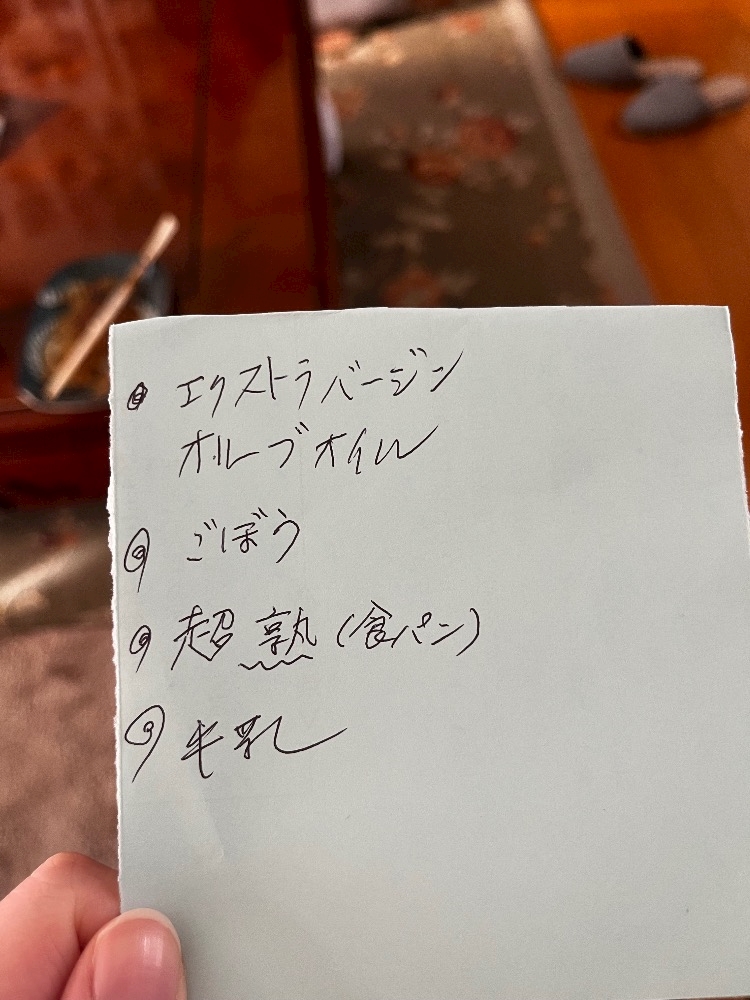 エクストラバージン
オリーブオイル
ごぼう
超熟(食パン)
牛乳